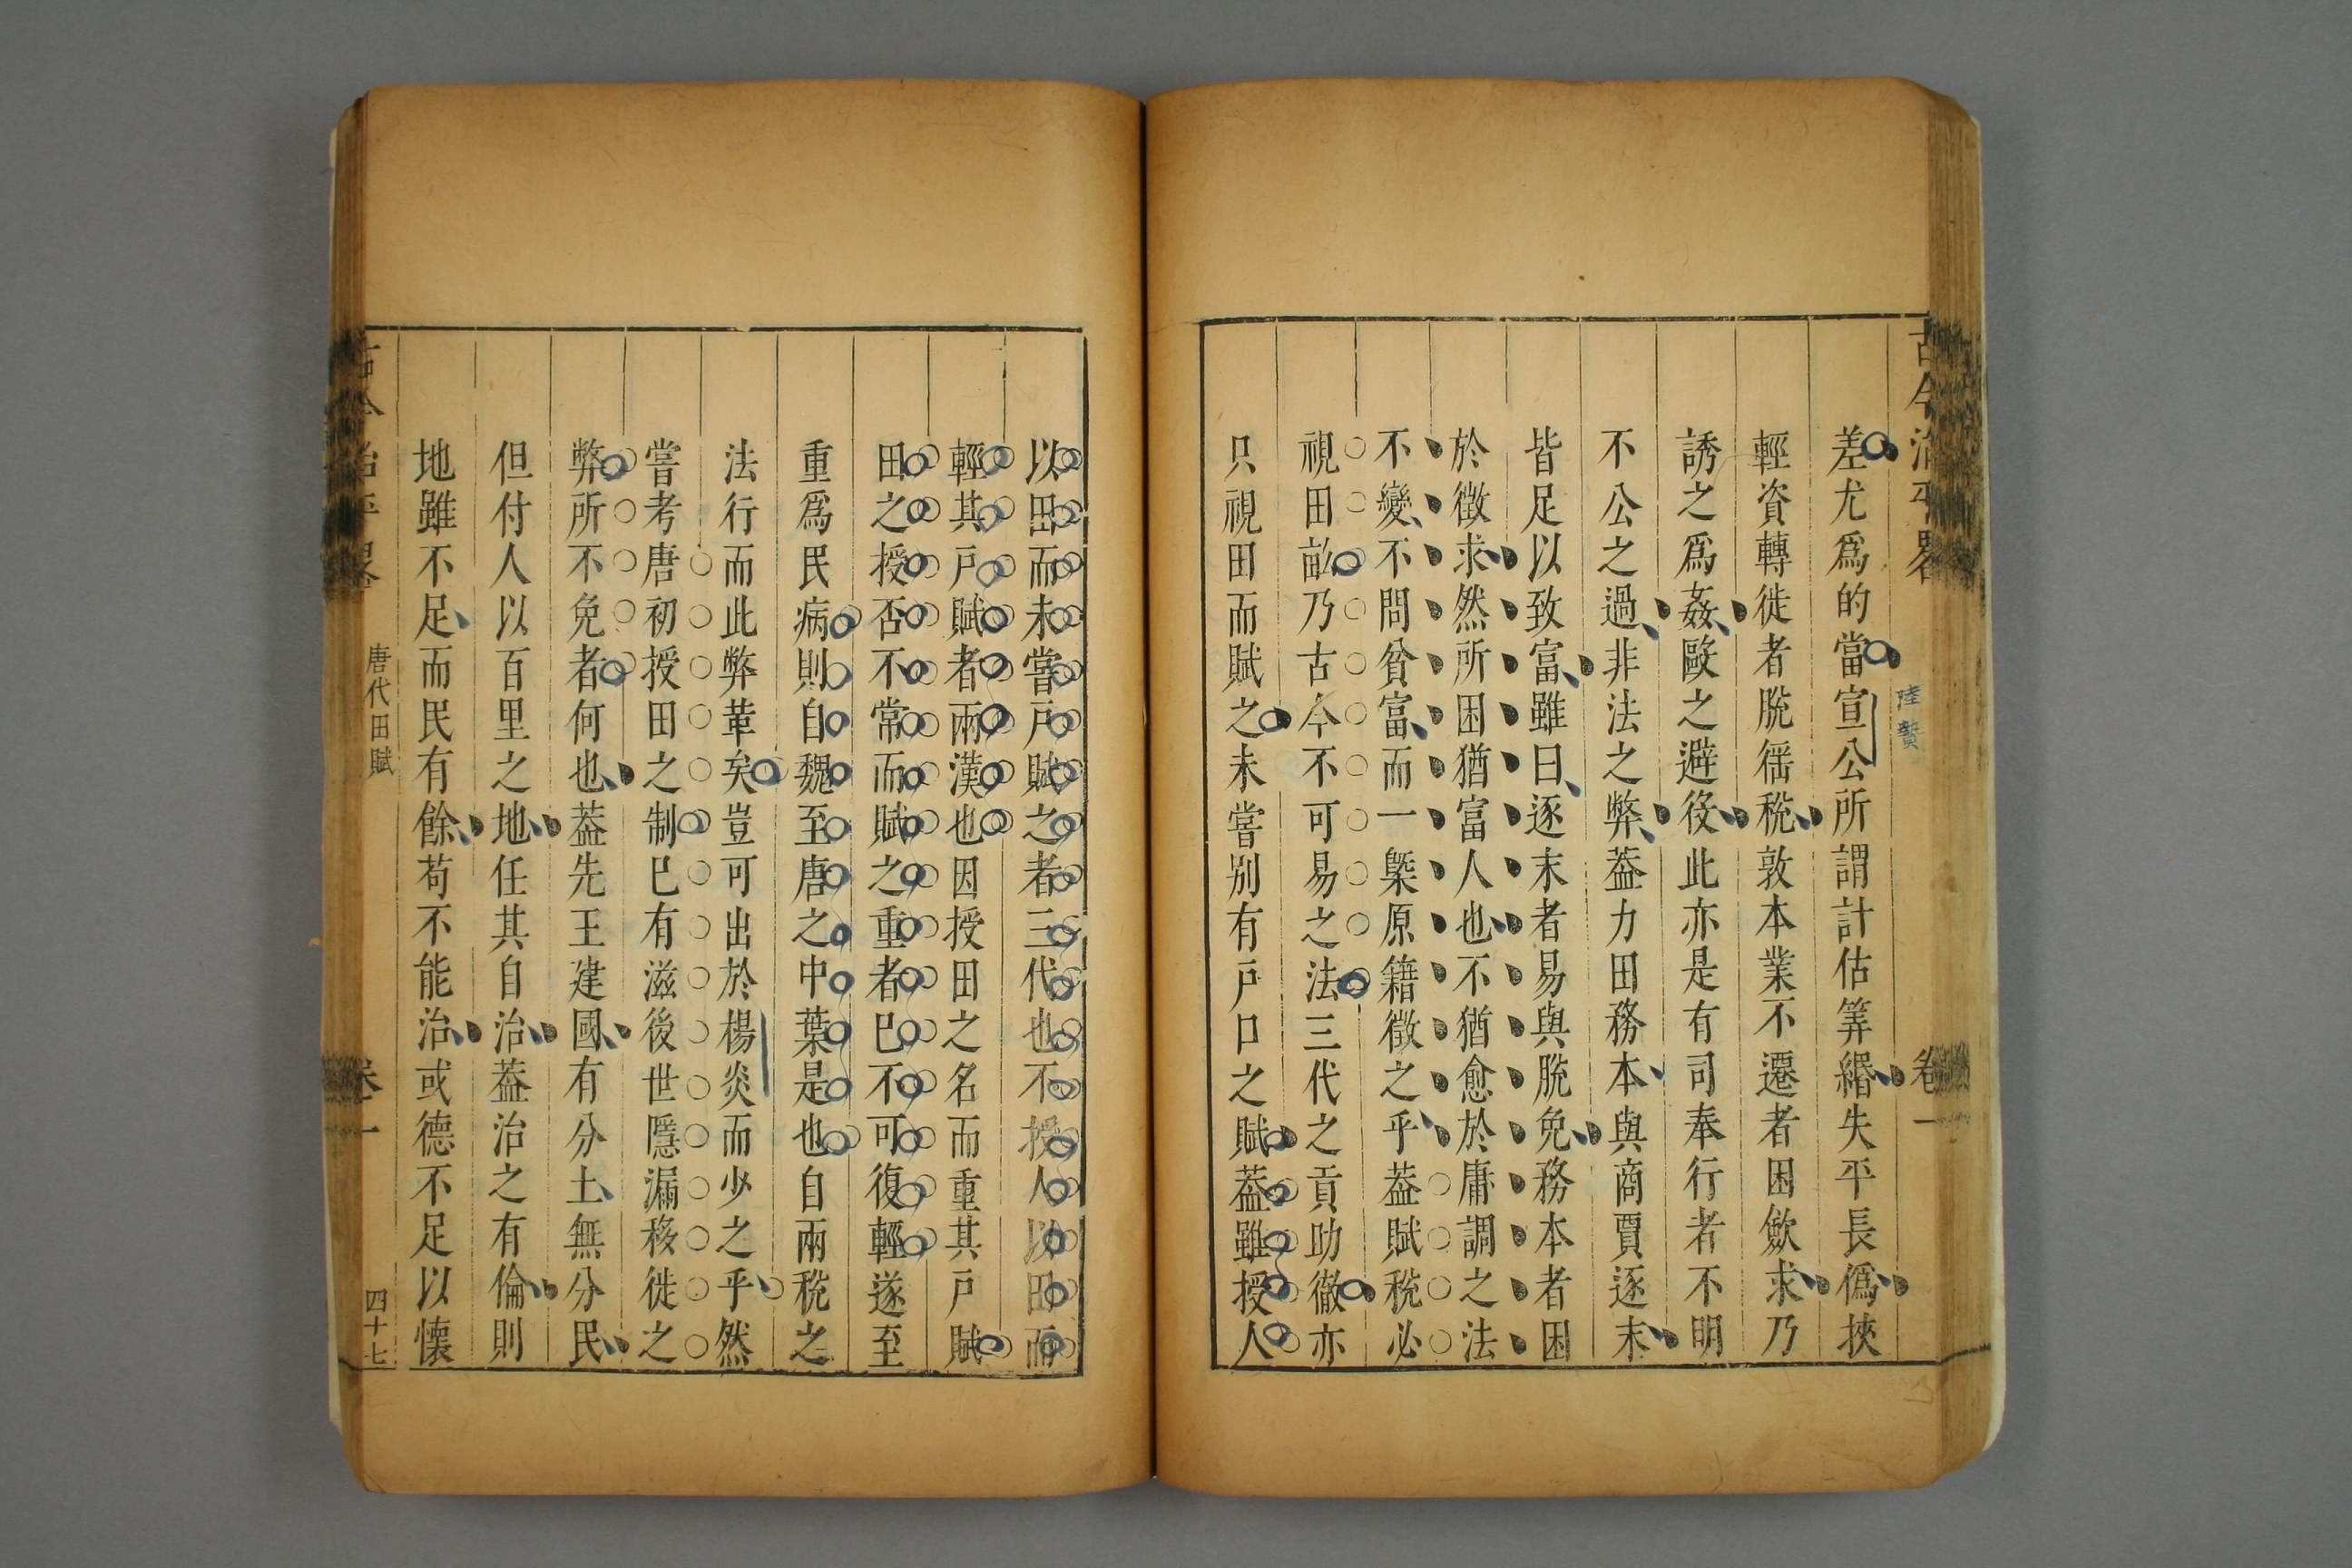 古今治平畧
卷一
陸贄
差尤爲的當宣公所謂計估筭緡失平長僞挾
輕資轉徙者脫徭稅敦本業不遷者困歛求乃
誘之爲姦敺之避役此亦是有司奉行者不明
不公之過非法之弊葢力田務本與商賈逐末
皆足以致富雖曰逐末者易與脫免務本者困
於徵求然所困猶富人也不猶愈於庸調之法
不變不問貧富而一槩原籍徵之乎葢賦稅必
視田畝乃古今不可易之法三代之貢助徹亦
只視田而賦之未嘗別有戶口之賦葢雖授人
以田而未嘗戶賦之者三代也不授人以田而
輕其戶賦者兩漢也因授田之名而重其戶賦
田之授否不常而賦之重者巳不可復輕遂至
重爲民病則自魏至唐之中葉是也自兩稅之
法行而此弊革矣豈可出於楊炎而少之乎然
嘗考唐初授田之制巳有滋後世隱漏移徙之
弊所不免者何也葢先王建國有分土無分民
但付人以百里之地任其自治葢治之有倫則
地雖不足而民有餘苟不能治或德不足以懷
古今治平畧
唐代田賦
卷一
四十七